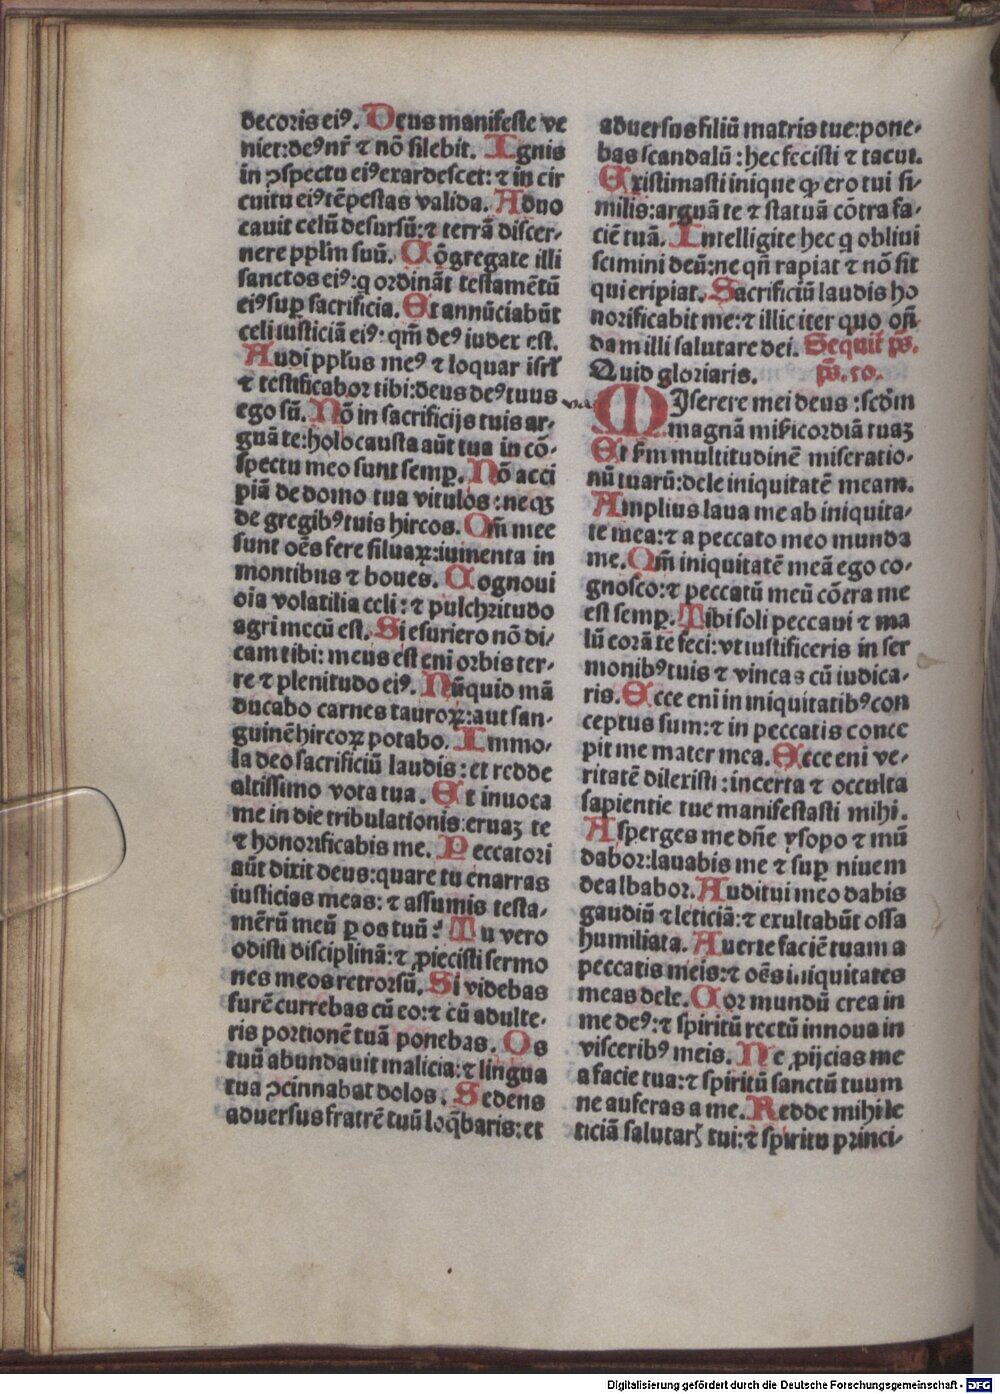 decoris eiꝰ. Deus manifeste ve
niet:deꝰ nr̄ ⁊ nō silebit. Ignis
in ↄspectu eiꝰ exardescet: ⁊ in cir
cuitu eiꝰ tēpestas valida. Aduo
cauit celū desursū:⁊ terrā discer-
nere pplm̄ suū. Cōgregate illi
sanctos eiꝰ:q ordināt testamētū
eiꝰ suꝑ sacrificia. Et annūciabūt
celi iusticiā eiꝰ: qm̄ deꝰ iudex est.
Audi pp̄lus meꝰ ⁊ loquar isrl̄
⁊ testificabor tibi:deus deꝰ tuus
ego sū. Nō in sacrificijs tuis ar-
guā te:holocausta aūt tua in cō-
spectu meo sunt semꝑ. Nō acci
piā de domo tua vitulos:neqꝫ
de gregibꝰ tuis hircos. Qm̄ mee
sunt oēs fere siluaꝝ:iumenta in
montibus ⁊ boues. Cognoui
oīa volatilia celi: ⁊ pulchritudo
agri mecū est. Si esuriero nō di-
cam tibi: meus est enī orbis ter-
re ⁊ plenitudo eiꝰ. Nūquid mā
ducabo carnes tauroꝝ:aut san-
guinē hircoꝝ potabo. Immo-
la deo sacrificiū laudis: et redde
altissimo vota tua. Et inuoca
me in die tribulationis:eruaꝫ te
⁊ honorificabis me. Peccatori
aūt dixit deus:quare tu enarras
iusticias meas: ⁊ assumis testa-
mētū meū ꝑ os tuū: Tu vero
odisti disciplinā:⁊ ꝓiecisti sermo
nes meos retrorsū. Si videbas
furē currebas cū eo:⁊ cū adulte-
ris portionē tuā ponebas. Os
tuū abundauit malicia:⁊ lingua
tua ↄcinnabat dolos. Sedens
aduersus fratrē tuū loq̄baris:et
aduersus filiū matris tue:pone-
bas scandalū:hec fecisti ⁊ tacui.
Existimasti inique ꝙ ero tui si-
milis:arguā te ⁊ statuā cōtra fa-
ciē tuā. Intelligite hec q obliui
scimini deū:ne qn̄ rapiat ⁊ nō sit
qui eripiat. Sacrificiū laudis ho
norificabit me:⁊ illic iter quo oñ
dam illi salutare dei. Sequit̄ ps.
Quid gloriaris. ps.50.
MIserere mei deus:scd̄m
magnā mīcordiā tuaꝫ
Et scd̄m multitudinē miseratio-
nū tuarū:dele iniquitatē meam.
Amplius laua me ab iniquita-
te mea:⁊ a peccato meo munda
me. Qm̄ iniquitatē meā ego co-
gnosco:⁊ peccatū meū cōtra me
est semꝑ. Tibi soli peccaui ⁊ ma
lū corā te feci:vt iustificeris in ser
monibꝰ tuis ⁊ vincas cū iudica-
ris. Ecce enī in iniquitatibꝰ con
ceptus sum:⁊ in peccatis conce
pit me mater mea. Ecce enī ve-
ritatē dilexisti:incerta ⁊ occulta
sapientie tue manifestasti mihi.
Asperges me dn̄e ysopo ⁊ mū
dabor:lauabis me ⁊ suꝑ niuem
dealbabor. Auditui meo dabis
gaudiū ⁊ leticiā:⁊ exultabūt ossa
humiliata. Auerte faciē tuam a
peccatis meis:⁊ oēs iniquitates
meas dele. Cor mundū crea in
me deꝰ:⁊ spiritū rectū innoua in
visceribꝰ meis. Ne ꝓijcias me
a facie tua:⁊ spiritū sanctū tuum
ne auferas a me. Redde mihi le
ticiā salutarꝭ tui:⁊ spiritu princi-
Digitalisierung gefördert durch die Deutsche Forschungsgemeinschaft - DFG